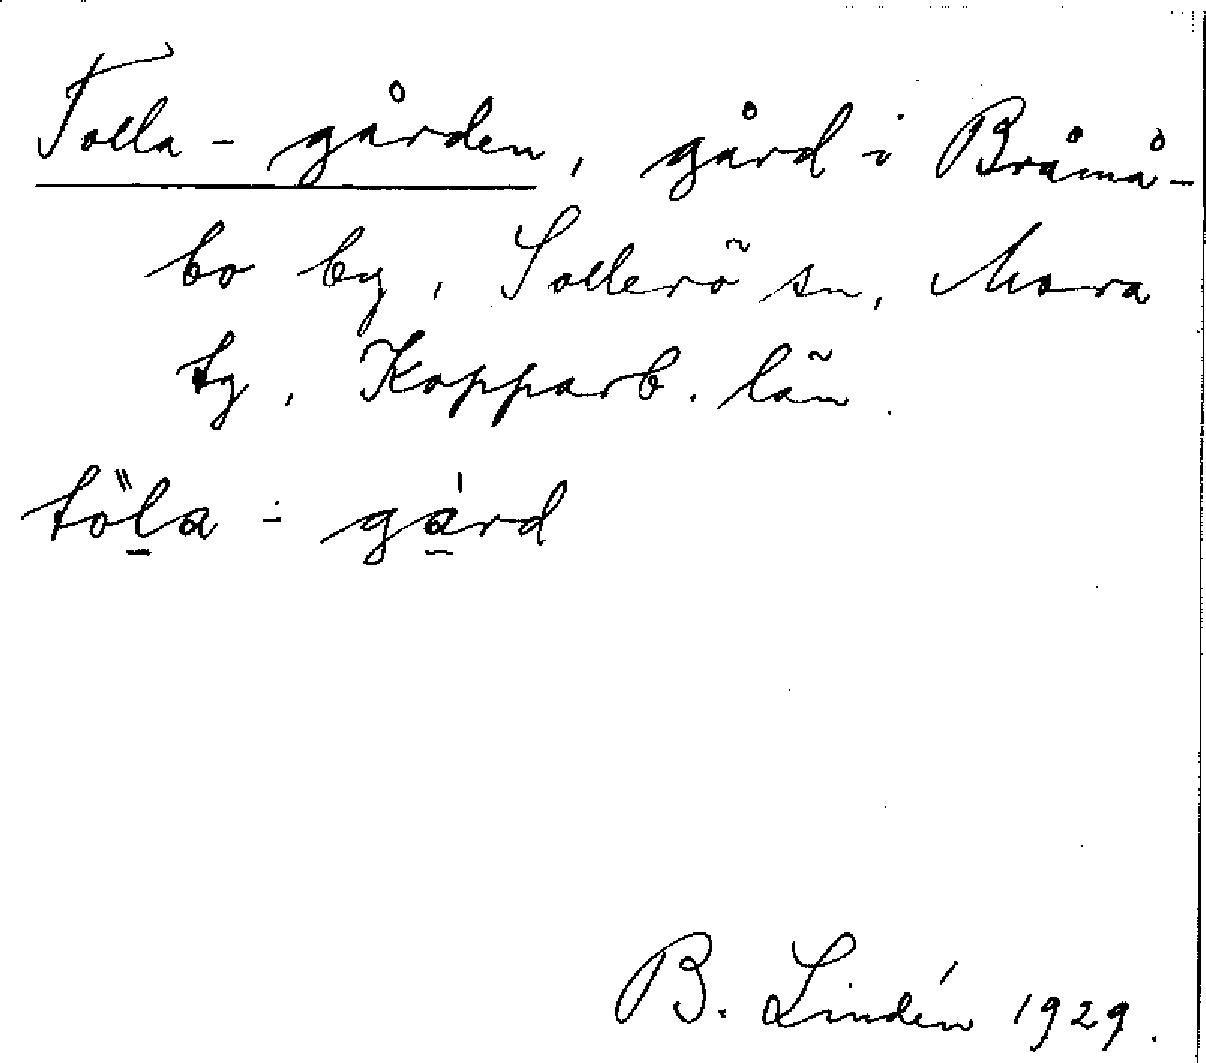 Tolla-gården, gård i Bråmå-
bo by, Sollerö sn, Mora
tg, Kopparb. län.
töla - gård
B. Lindén 1929.